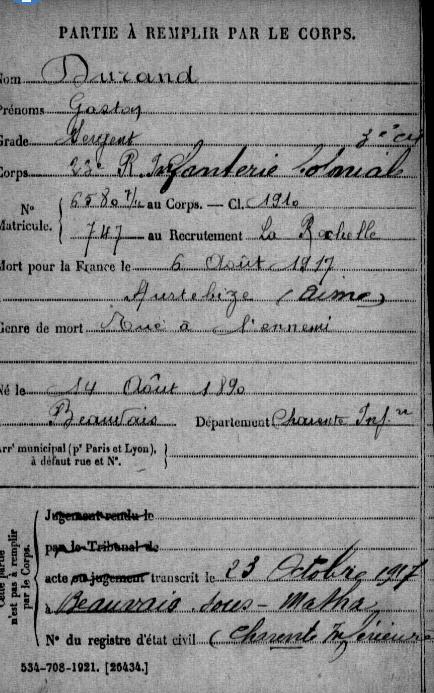 PARTIE À REMPLIR PAR LE CORPS.
Nom Durand
Prénoms Gaston
Grade Sergent 3e Cie
Corps 23e R. Infanterie Colonial
N° Matricule. { 6580 au Corps. — Cl. 1910
747 au Recrutement La Rochelle
Mort pour la France le 6 Août 1917
Hurtebize (Aisne)
Genre de mort Tué à l'ennemi
Né le 14 Août 1890
Beauvais Département Charente Infre
Arrt municipal (pr Paris et Lyon), à défaut rue et N°. }
Cette partie n'est pas à remplir par le Corps.
Jugement rendu le
par le Tribunal de
acte ou jugement transcrit le 23 Octobre 1917
à Beauvais-sous-Matha
N° du registre d'état civil (Charente Inférieure
534-708-1921. [26434.]